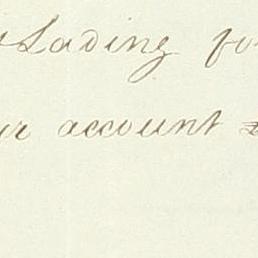 Lading for
ur account